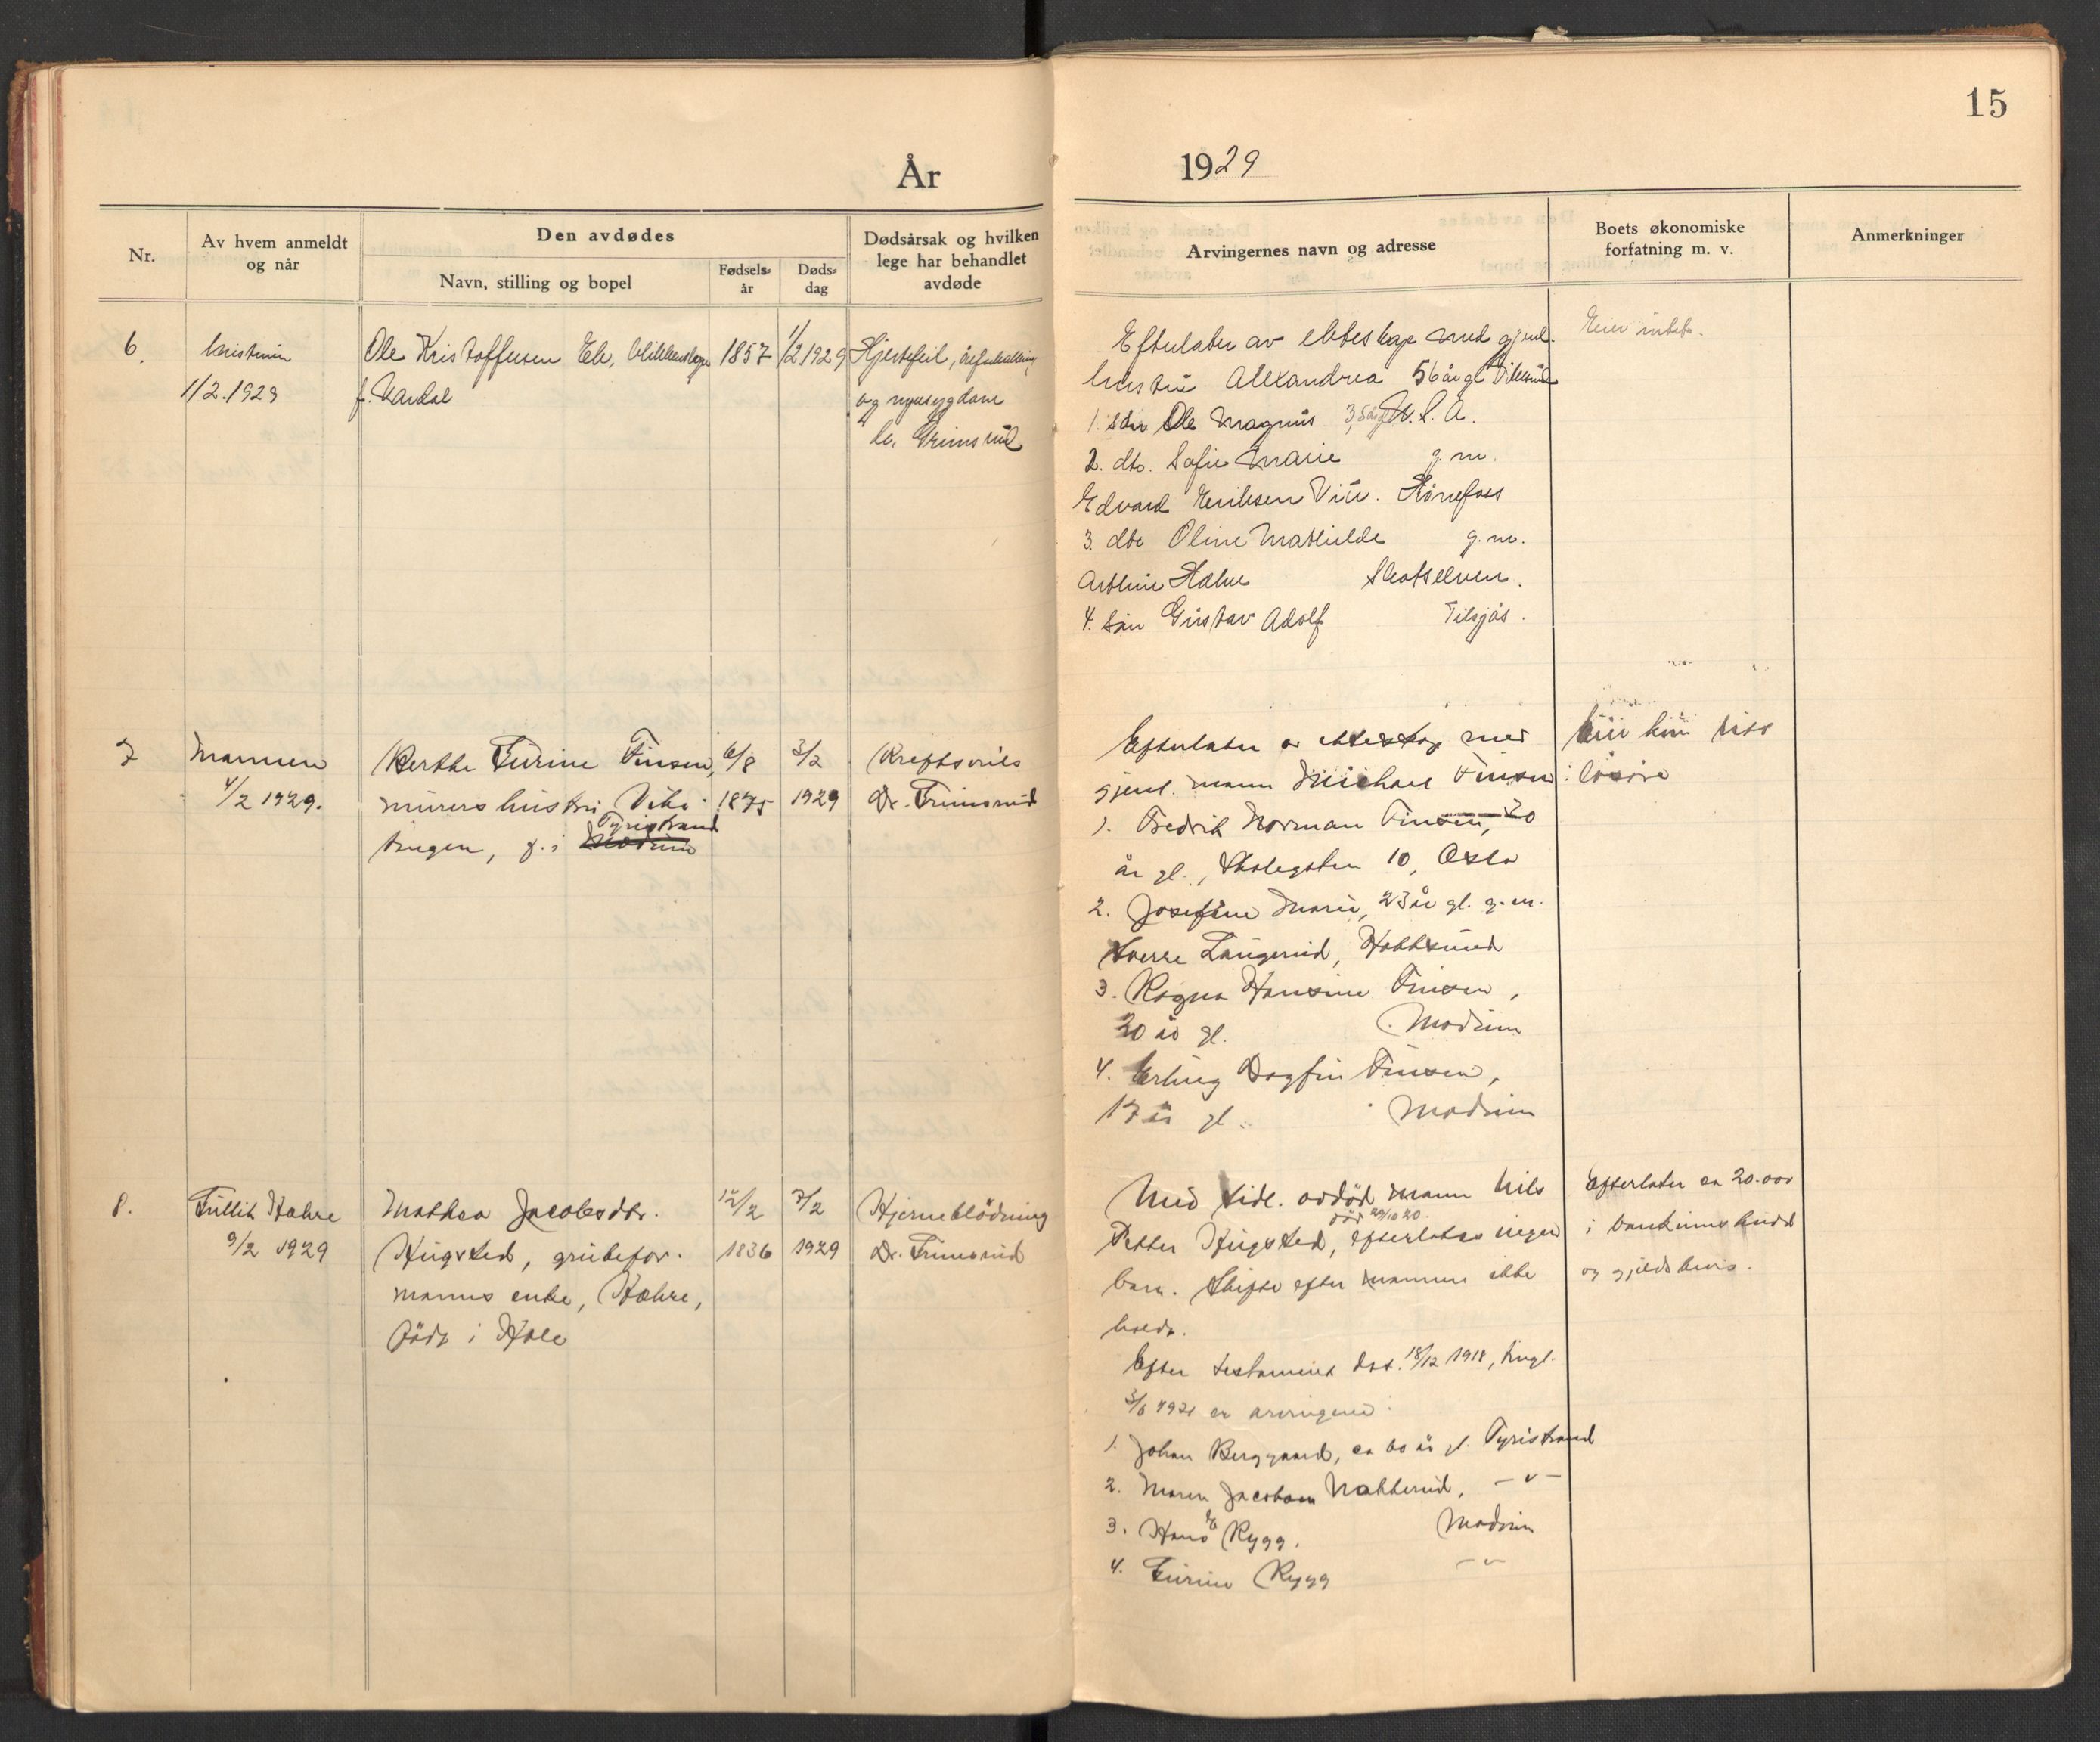 15
År 1929
Nr.
Av hvem anmeldt og når
Den avdødes
Navn, stilling og bopel
Fødsels= år
Døds= dag
Dødsårsak og hvilken lege har behandlet avdøde
Arvingernes navn og adresse
Boets økonomiske forfatning m. v.
Anmerkninger
6.
hustruen
1/2.1929
Ole Kristoffersen Ek,
f. Aardal
1857
1/2 1929
Hjertefeil, åreforkalkning
og nyresygdom
Dr. Grimsrud
Efterlater av ekteskap med gjenl.
hustru Alexandrea 56 år gl Vikersund
1. søn Ole Magnus 35 årgl U. S. A.
2. dtr. Sofie Marie g. m.
Edvard Eriksen Viul. Hønefoss
3. dtr Oline Mathilde g. m.
Skotselven.
4. søn Gustav Adolf
Eier intet.
7
Mannen
4/2 1929.
Berthe Turine Finsen,
murers hustru, Vike-
Tyristrand
tangen, f. i Modum
6/8
1875
3/2
1929
Kreftsvuls
Dr. Grimsrud
Efterlater av ekteskap med
gjenl. mann Michael Finsen:
1. Fredrik Norman Finsen, 30
år gl., Skolegaten 10, Oslo
2. Josefine Marie, 23 år gl. g.m.
Sverre Langerud, Hokksund
3. Ragna Hansine Finsen,
20 år gl. Modum
4. Erling Dagfin Finsen,
17 år gl. Modum
Eier kun litt
løsøre
8.
Tollit Kahrs
9/2 1929
Mathea Jacobsdtr.
Hugsted, grubefor-
manns enke,
født i Hole
12/2
1836
7/2
1929
Hjerneblødning
Dr. Grimsrud
Med tidl. avdød mann Nils
død 29/10 20.
Petter Hugsted, efterlates ingen
barn. Skifte efter mannen ikke
holdt.
Efter testament dat. 18/12 1918, tingl.
3/6 1921 er arvingene:
1. Johan Berggaard, ca 60 år gl. Tyristrand
2. Maren Jacobsen Nakkerud, -"-
3. Hans Rygg. Modum
4. Turine Rygg -"-
Efterlater ca 20.000
i bankinnskudd
og gjeldsbevis.